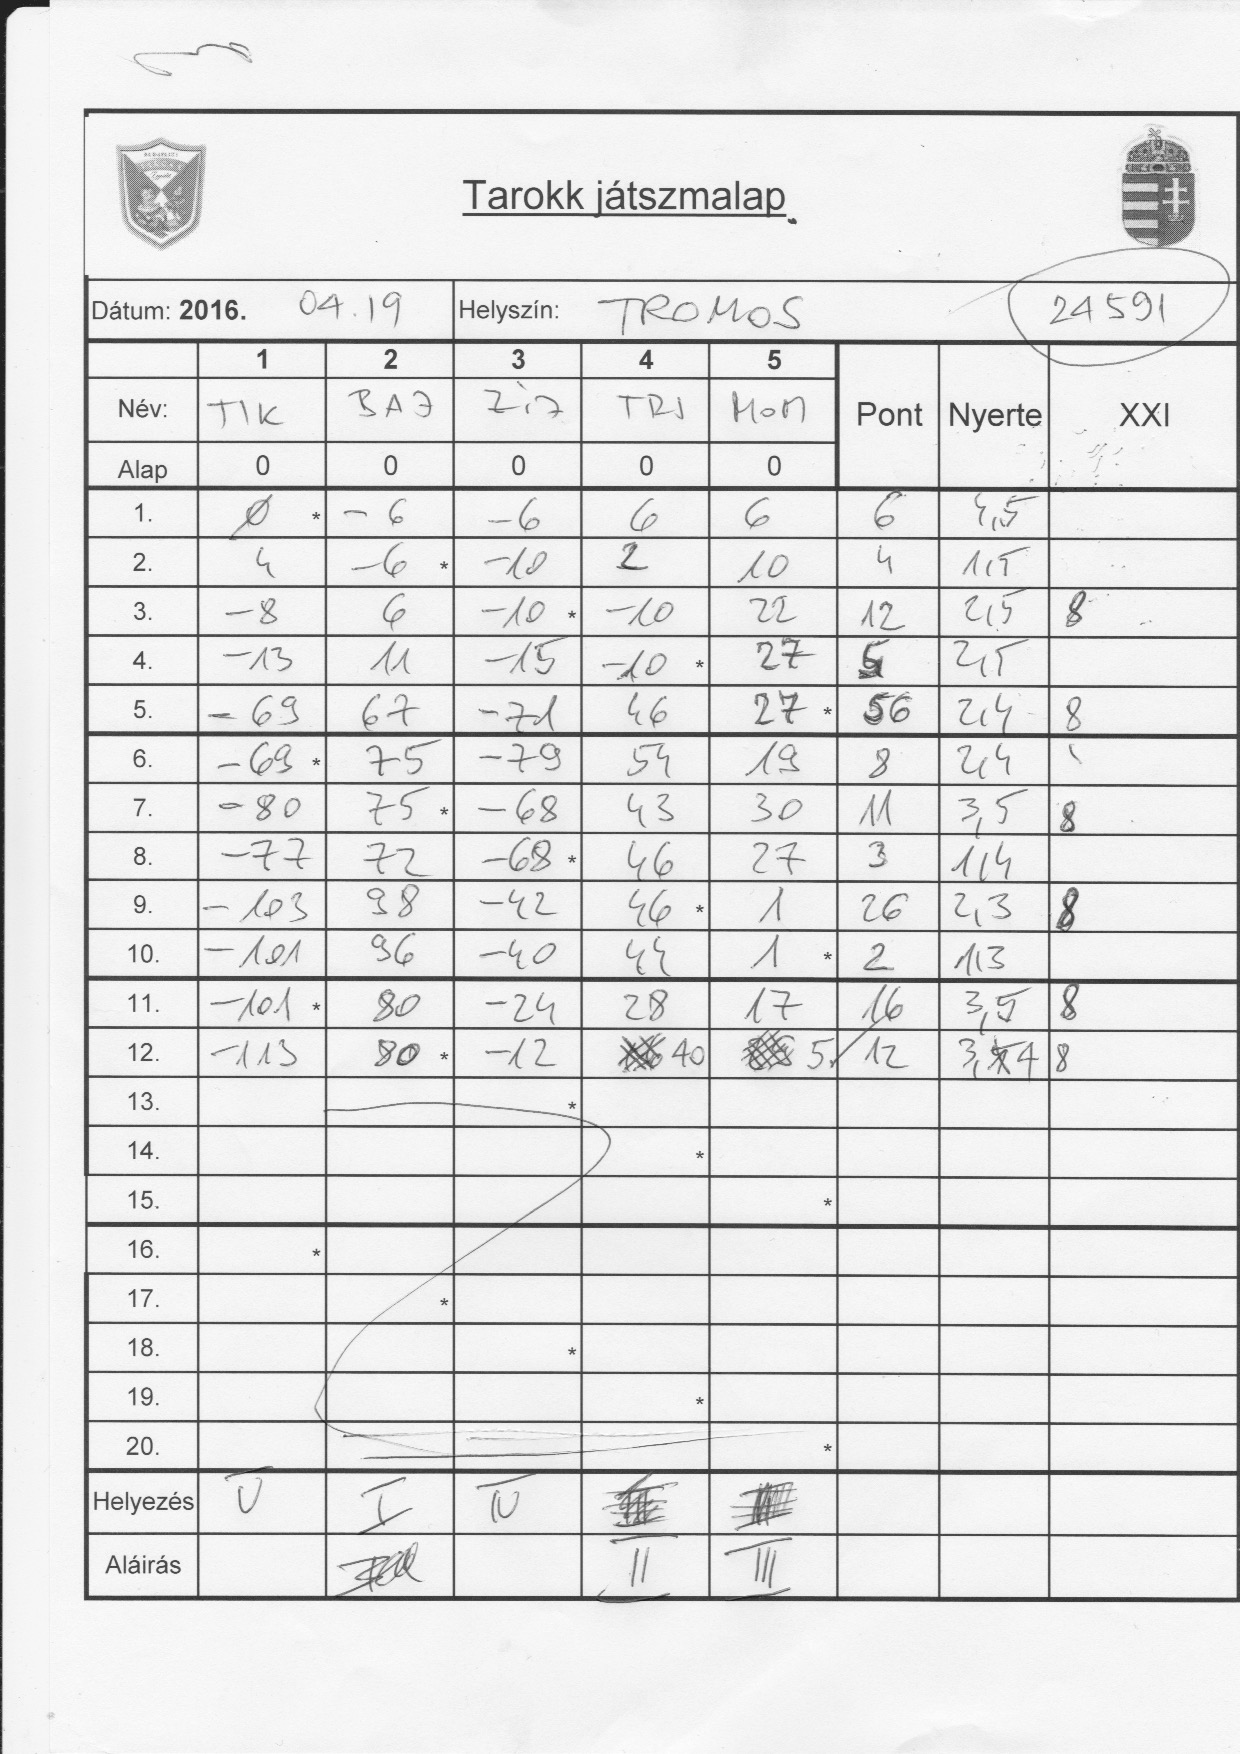 Tarokk játszmalap
Dátum: 2016. 04.19 Helyszín: TROMOS 24591
1 2 3 4 5
Név: TIK BAJ ZiZ TRJ MOM Pont Nyerte XXI
Alap 0 0 0 0 0
1. 0 * -6 -6 6 6 6 4,5
2. 4 -6 * -10 2 10 4 1,5
3. -8 6 -10 * -10 22 12 2,5 8
4. -13 11 -15 -10 * 27 5 2,5
5. -69 67 -71 46 27 * 56 2,4 8
6. -69 * 75 -79 54 19 8 2,4
7. -80 75 * -68 43 30 11 3,5 8
8. -77 72 -68 * 46 27 3 1,4
9. -103 98 -42 46 * 1 26 2,3 8
10. -101 96 -40 44 1 * 2 1,3
11. -101 * 80 -24 28 17 16 3,5 8
12. -113 80 * -12 40 5 12 3,4 8
13. *
14. *
15. *
16. *
17. *
18. *
19. *
20. *
Helyezés V I IV
Aláirás II III